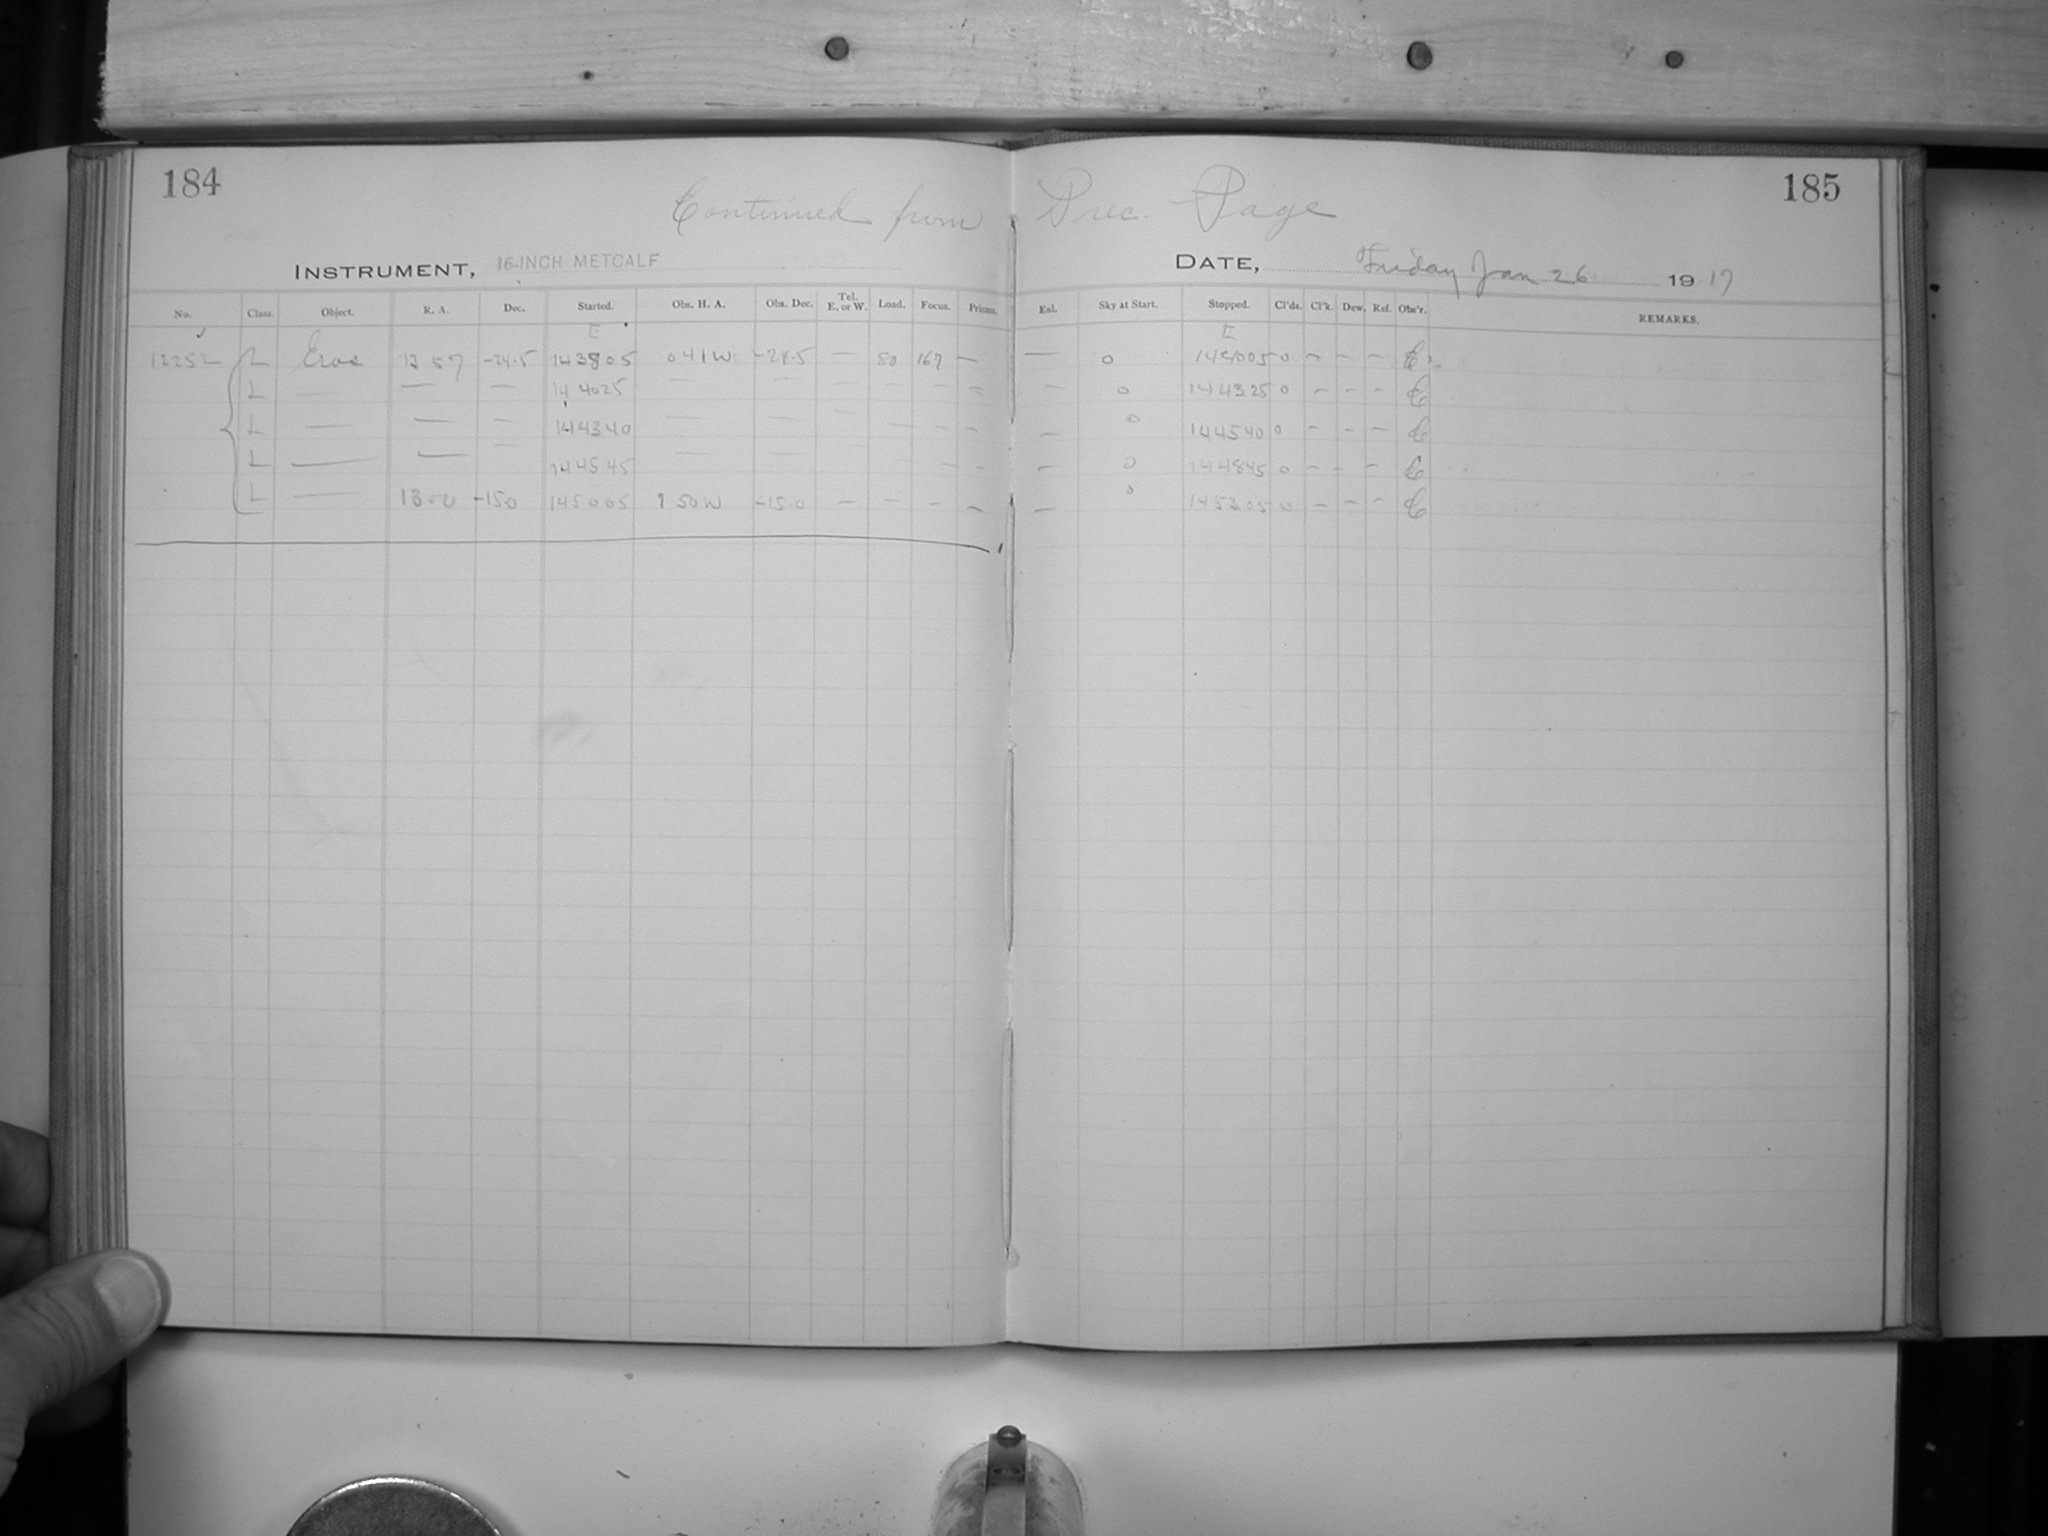 184
185
Continued from Prec. Page
INSTRUMENT, 16-INCH METCALF
DATE, Friday Jan 26 1917
No. Class. Object. R. A. Dec. Started. Obs. H. A. Obs. Dec. Tel. E. or W. Load. Focus. Prisms. Enl. Sky at Start. Stopped. Cl'ds. Cl'k. Dew. Rel. Obs'r. REMARKS.
E E
12252 L Eros -24.5 0 41 W -24.5 — 80 167 — — 0 0 – – – E
L — — — 14 40 25 — — – — 0 14 43 25 0 – – – E
L — — — 14 43 40 — — — – – — 0 14 45 40 0 – – – E
L — — 14 45 45 — — – – – — 0 14 48 45 0 – – – E
L — 13 00 -15.0 14 50 05 1 50 W -15.0 – – – – — 0 14 53 05 0 – – – E